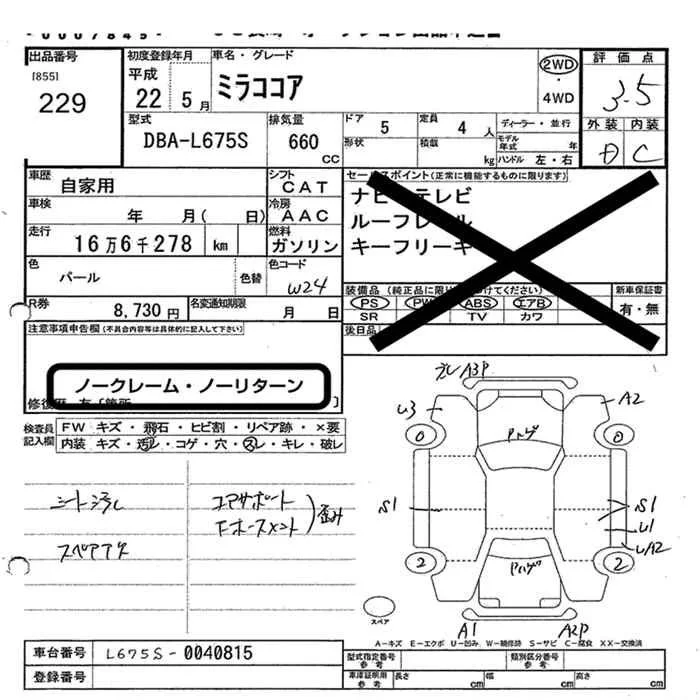 出品番号
[855]
229
初度登録年月
平成
22 5月
車名・グレード
ミラココア
2WD
・
4WD
評価点
3.5
外装 内装
D C
型式
DBA-L675S
排気量
660
CC
ドア
5
形状
定員
4人
積載
kg
ディーラー・並行
モデル
年式 年
ハンドル 左・右
車歴
自家用
車検
年 月( 日)
走行
16万6千278 km
シフト
CAT
冷房
AAC
燃料
ガソリン
色
パール
色替
色コード
W24
R券
8,730円
名変通知期限
月 日
セールスポイント(正常に機能するものに限ります)
ナビ テレビ
ルーフレール
キーフリーキ
装備品(純正品に限り けてください)
PS PW ABS エアB
SR TV カワ
後日品
新車保証書
有・無
注意事項申告欄(不具合内容等は具体的に記入して下さい)
ノークレーム・ノーリターン
修復歴 有[箇所 ]
検査員
記入欄
FW キズ・飛石・ヒビ割・リペア跡・×要
内装 キズ・汚レ・コゲ・穴・スレ・キレ・破レ
シート汚れ
スペアタイヤ
コアサポート
Fホースメント
歪み
A3P
U3
A2
0
0
Pハゲ
S1
S1
U1
U/A2
2
2
Pハゲ
スペア
A1
A2P
A-キズ E-エクボ U-凹み W-補修跡 S-サビ C-腐食 XX-交換済
車台番号
L675S-0040815
登録番号
型式指定番号
参考
類別区分番号
参考
車庫証明用
参考
長さ
cm
幅
cm
高さ
cm